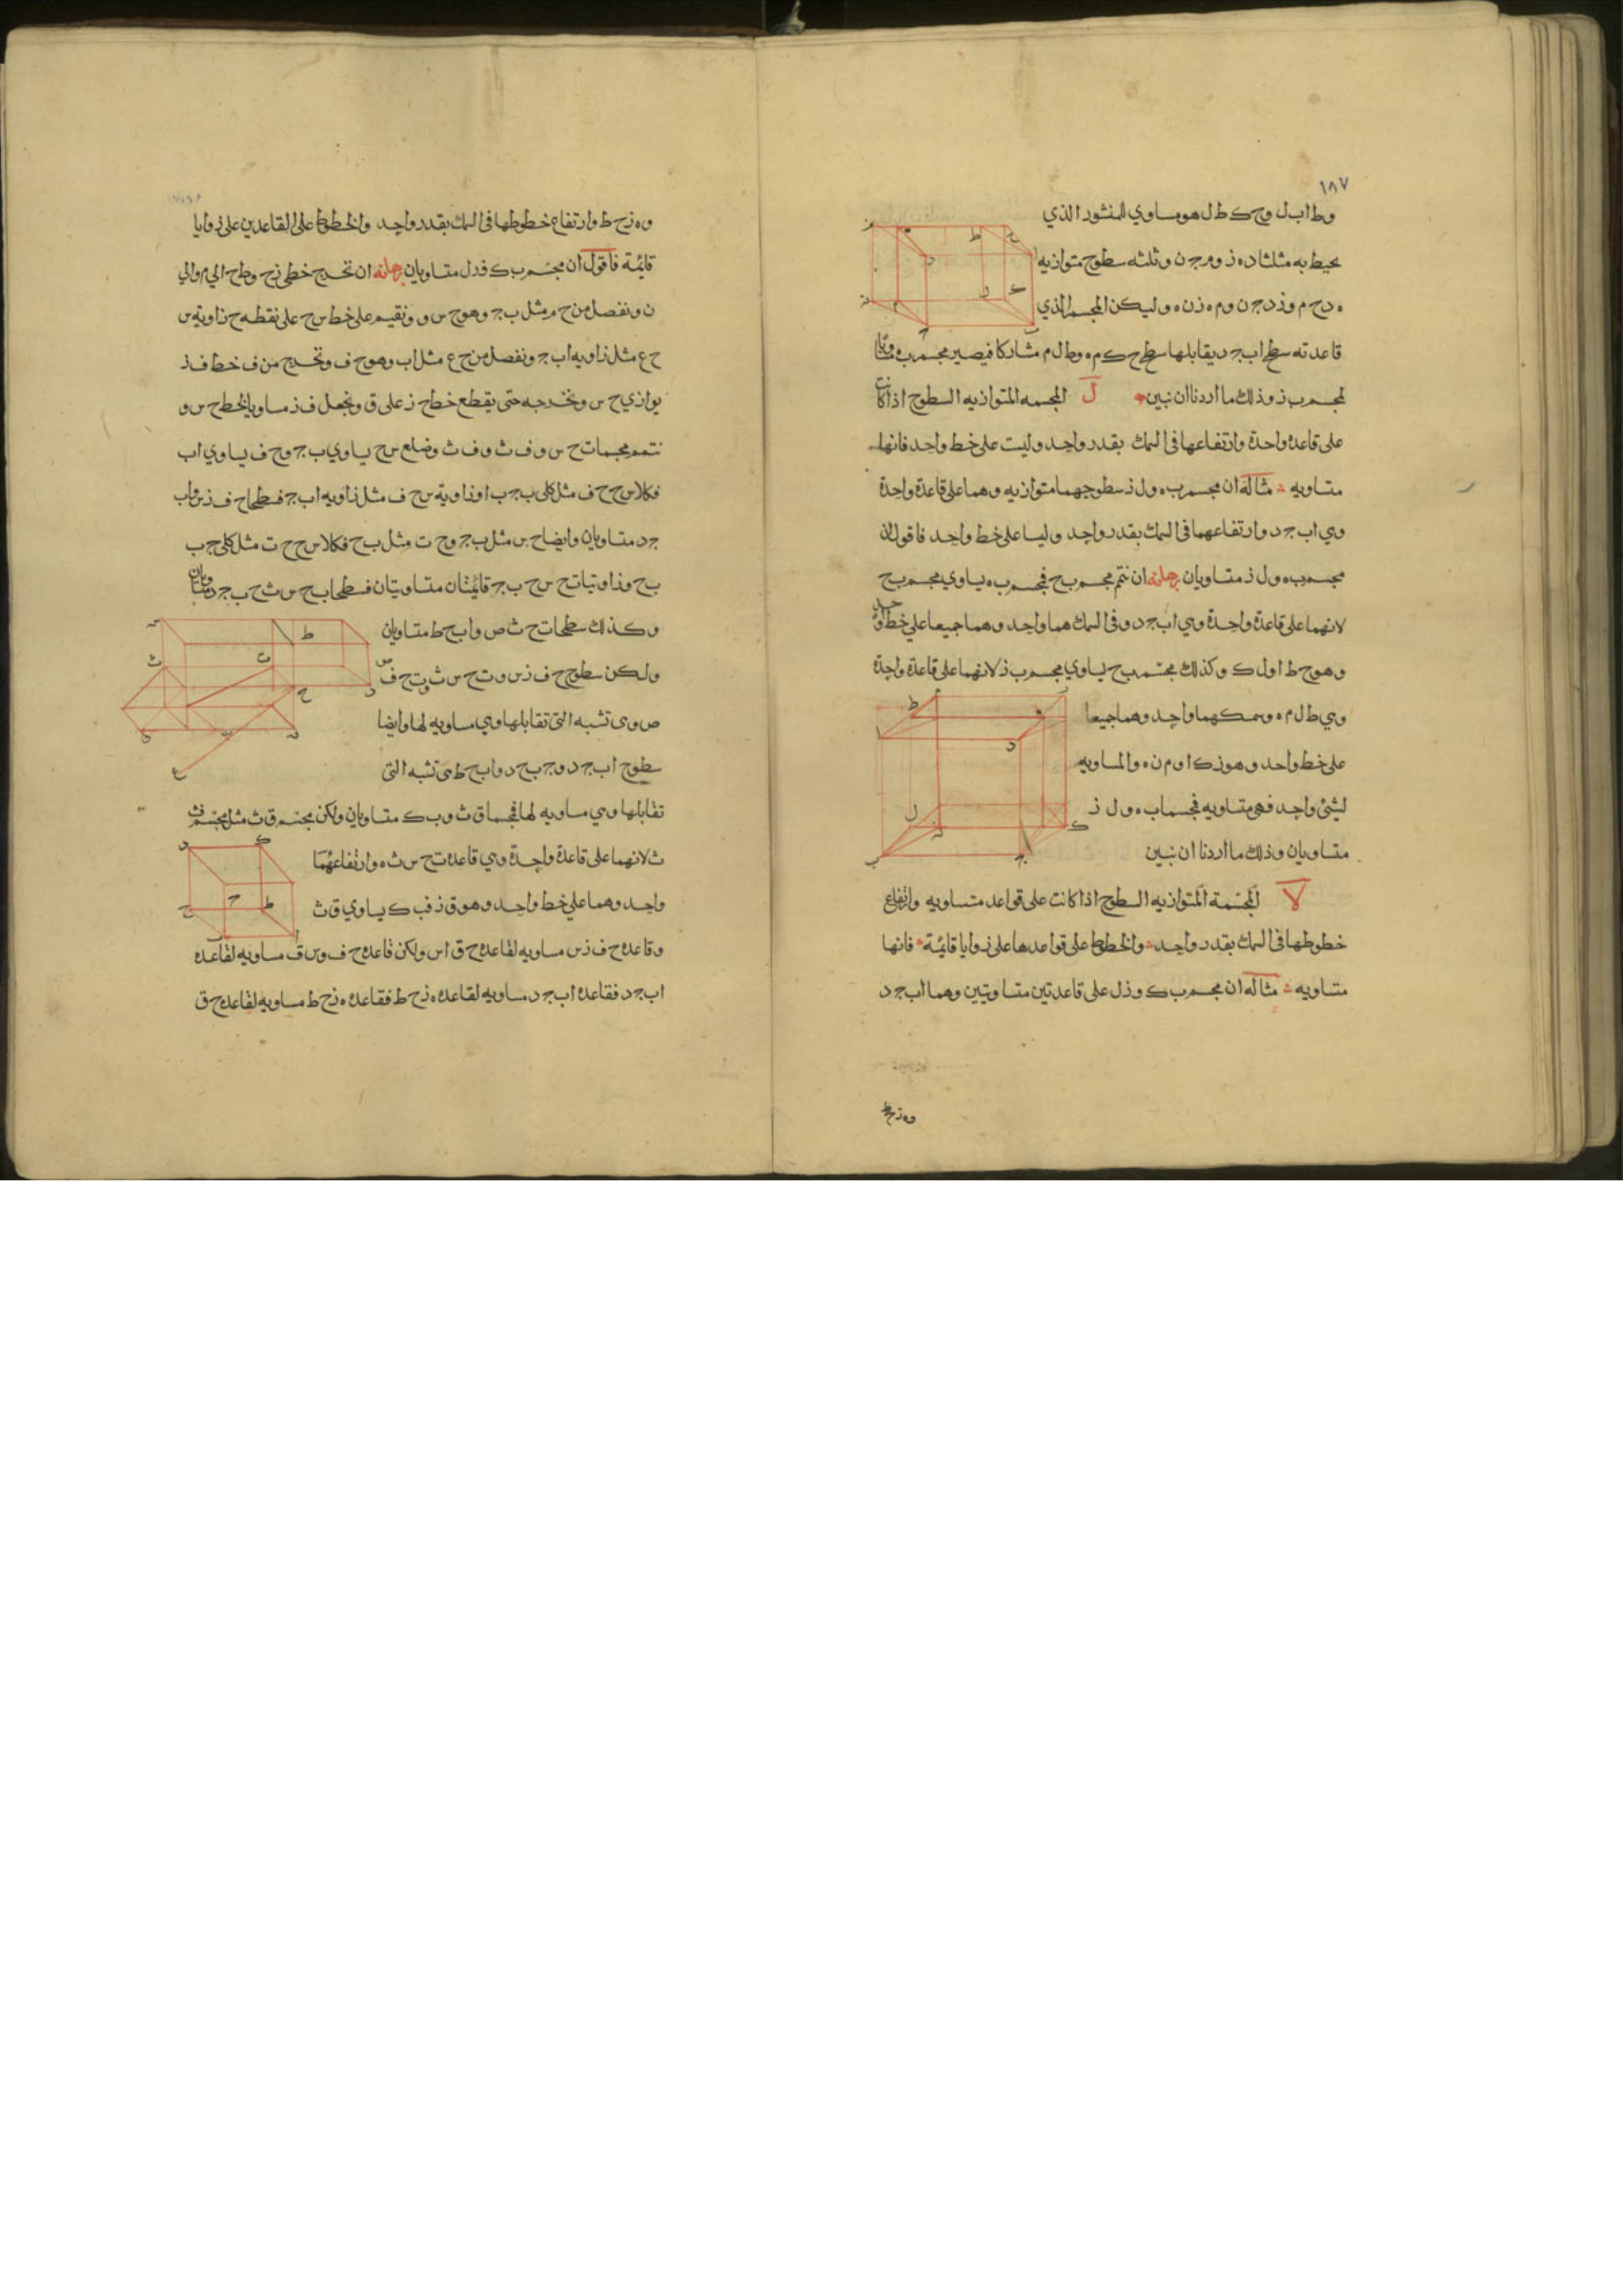 ١٨٧
وط ا ب ل وح ك ط ل هو مساوي للمنشور الذي
يحيط به مثلثا د ه ز وم ج ن وثلثه سطوح متوازيه
ه د ج م وز د ج ن وم ه ز ن ه وليكن المجسم الذي
قاعدته سطح ا ب ج د يقابلها سطح ح ك م ه وط ل م مشاركا فيصير مجسم ب ه مساويا
لمجسم ب ز وذلك ما اردنا ان نبين ل المجسمه المتوازيه السطوح اذا كانت
على قاعدة واحدة وارتفاعها في السمك بقدر واحد وليست على خط واحد فانها
متساويه مثاله ان مجسم ب ه ول ز سطوحهما متوازيه وهما على قاعدة واحدة
وهي ا ب ج د وارتفاعهما في السمك بقدر واحد وليسا على خط واحد فاقول ان
مجسم ب ه ول ز متساويان برهانه ان نتم مجسم ب ح فمجسم ب ه يساوي مجسم ب ح
لانهما على قاعدة واحدة وهي ا ب ج د وفي السمك هما واحد وهما جميعا على خط واحد
وهو ح ط ا ول ك وكذلك مجسم ب ح يساوي مجسم ب ز لانهما على قاعدة واحدة
وهي ط ل م ه وسمكهما واحد وهما جميعا
على خط واحد وهو ز ك ا وم ن ه والمساويه
لشئ واحد فهي متساويه فمجسما ب ه ول ز
متساويان وذلك ما اردنا ان نبين
لا المجسمة المتوازيه السطوح اذا كانت على قواعد متساويه وارتفاع
خطوطها في السمك بقدر واحد والخطوط على قواعدها على زوايا قائمة فانها
متساويه مثاله ان مجسم ب ك وز ل على قاعدتين متساويتين وهما ا ب ج د
وه ز ح ط
وه ز ح ط وارتفاع خطوطها في السمك بقدر واحد والخطوط على القاعدين على زوايا
قائمة فاقول ان مجسم ب ك وز ل متساويان برهانه ان نخرج خطي ز ح وط ح الي م والي
ن ونفصل من ح م مثل ب ج وهو ح س و ونقيم على خط س ح على نقطه ح زاوية س
ح ع مثل زاويه ا ب ج ونفصل من ح ع مثل ا ب وهو ح ف ونخرج من ف خط ف ز
يوازي ح س ونخرجه حتى يقطع خط ح ز على ق ونجعل ف ز مساويا لخط ح س و
نتمم مجسمات ح س و ف ث و ف ث وضلع س ح يساوي ب ج وح ف يساوي ا ب
فكلا س ح ح ف مثل كلى ب ج ب ا وزاوية س ح ف مثل زاويه ا ب ج فسطحا ح ف ز س وا ب
ج د متساويان وايضا ح س مثل ب ج وح ت مثل ب ح فكلا س ح ح ت مثل كلى ج ب
ب ح وزاويتا ت ح س ح ب ج قائمتان متساويتان فسطحا ب ح س ث ح ب ج د متساويان
وكذلك سطحا ت ح ث ص وا ب ح ط متساويان
ولكن سطوح ح ف ز س وت ح س ث وت ح ف
ص وى تشبه التى تقابلها وهي مساويه لها وايضا
سطوح ا ب ج د وج ب ح د وا ب ح ط هى تشبه التى
تقابلها وهي مساويه لها فمجسما ق ث وب ك متساويان ولكن مجسم ق ث مثل مجسم ف
ث لانهما على قاعدة واحدة وهي قاعدة ت ح س ث ه وارتفاعهما
واحد وهما على خط واحد وهو ق ز ف ب ك يساوي ق ث
وقاعده ح ف ز س مساويه لقاعده ح ق ا س ولكن قاعده ح ف وس ق مساويه لقاعده
ا ب ج د فقاعده ا ب ج د مساويه لقاعده ه ز ح ط فقاعده ه ز ح ط مساويه لقاعده ح ق